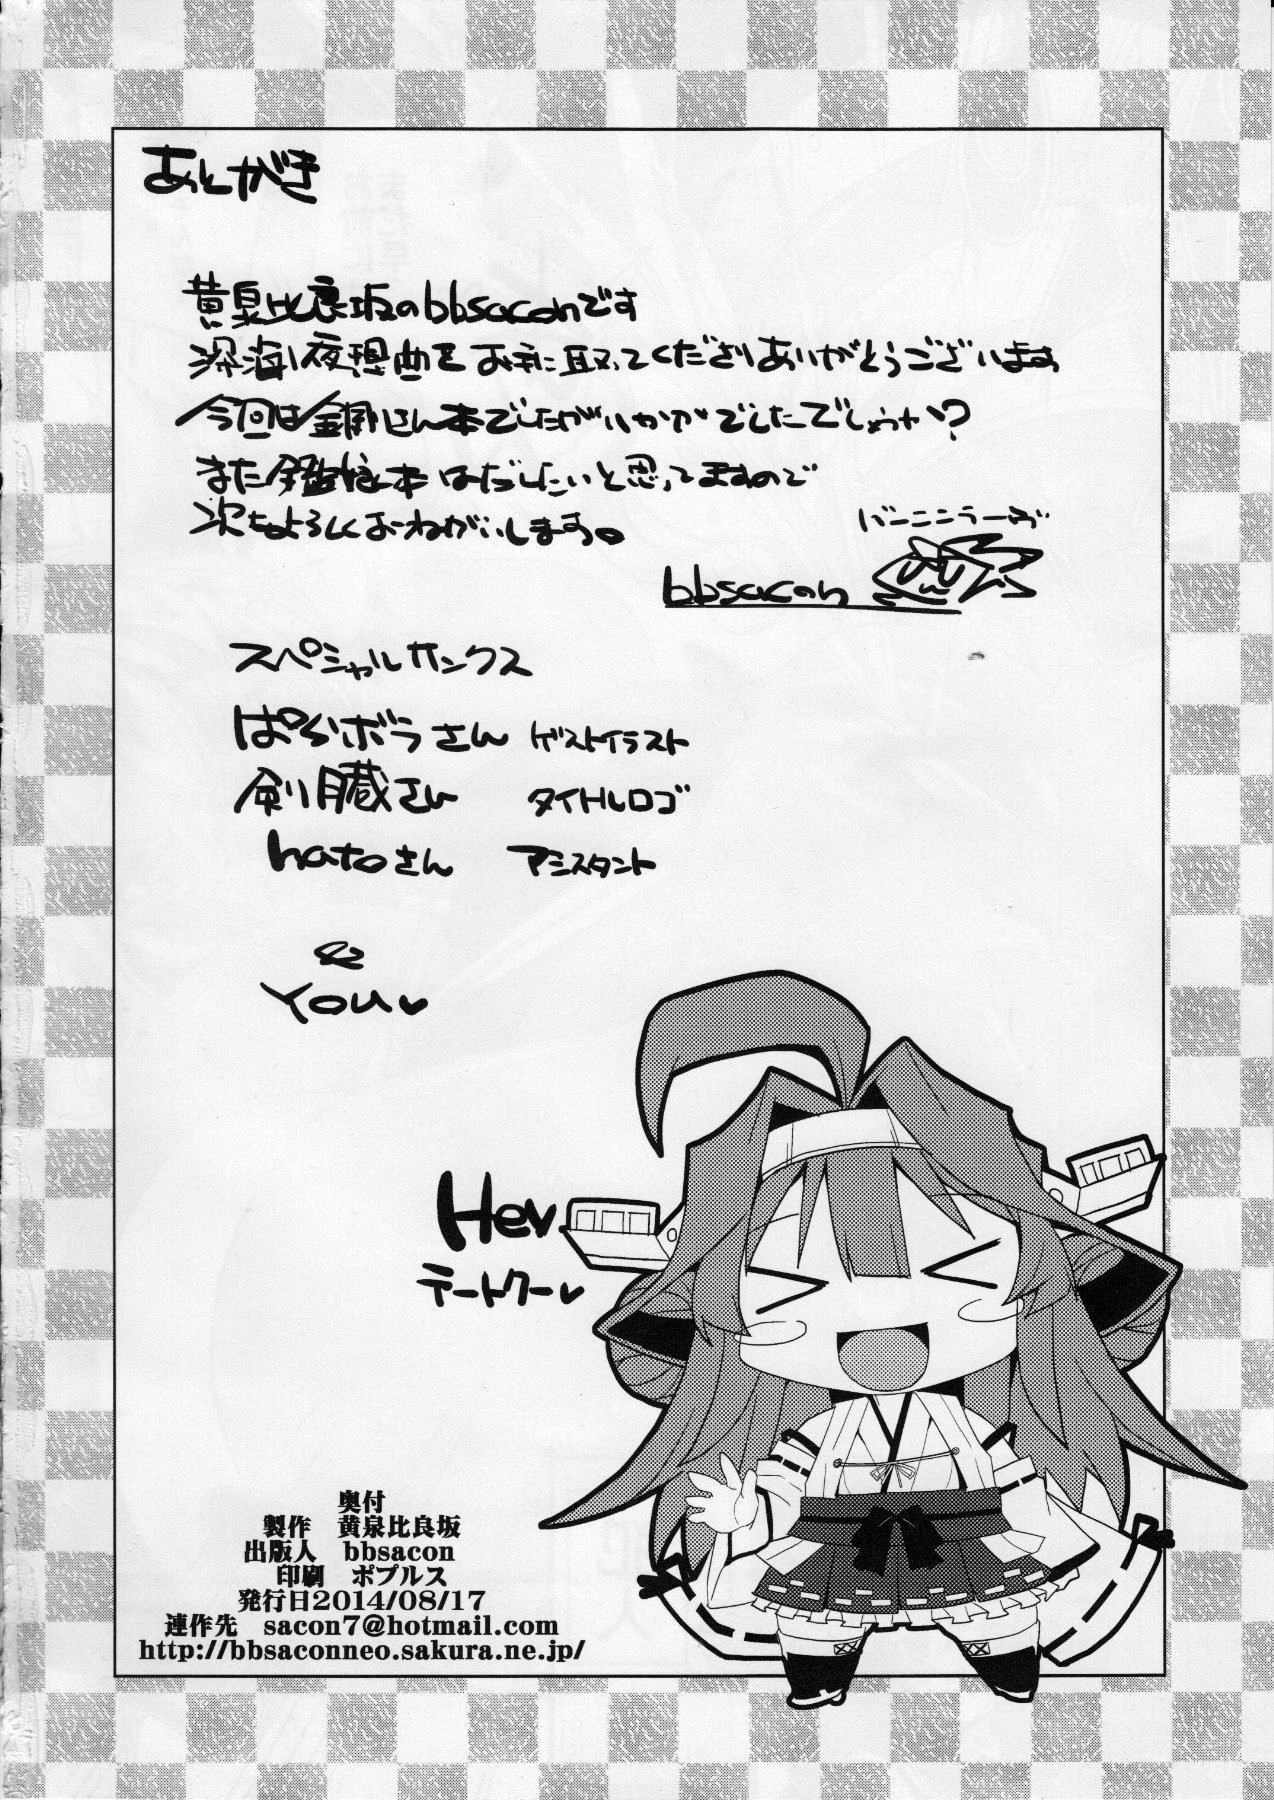 あとがき
黄泉比良坂のbbsaconです
深海夜想曲をお手に取ってくださりありがとうございます
今回は金剛さん本でしたがいかがでしたでしょうか?
また艦娘本はだしたいと思ってますので
次もよろしくおーねがいします。
バーニニラーぶ
bbsacon
スペシャルサンクス
ぱらボラさん ゲストイラスト
剣月蔵さん タイトルロゴ
hatoさん アシスタント
&
You♥
Hey
テートクー♥
奥付
製作 黄泉比良坂
出版人 bbsacon
印刷 ポプルス
発行日2014/08/17
連作先 sacon7@hotmail.com
http://bbsaconneo.sakura.ne.jp/